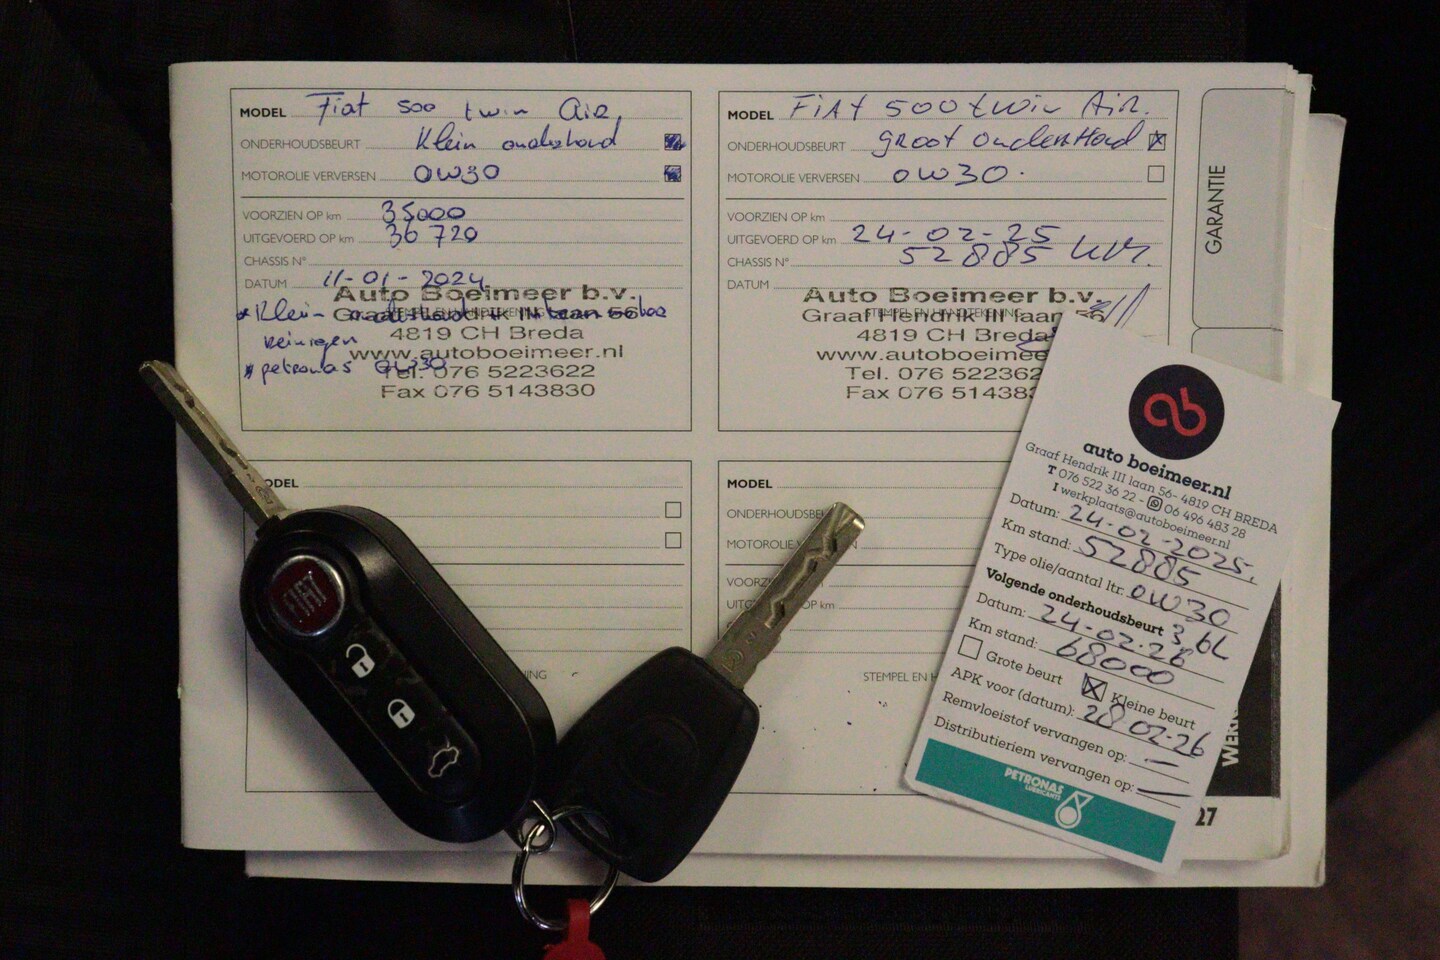 MODEL Fiat 500 twin Air,
ONDERHOUDSBEURT Klein onderhoud
MOTOROLIE VERVERSEN 0W30
VOORZIEN OP km 35000
UITGEVOERD OP km 36 720
CHASSIS N°
DATUM 11-01-2024
Auto Boeimeer b.v.
* Klein
Graaf Hendrik III laan 56
4819 CH Breda
reinigen
www.autoboeimeer.nl
* petronas 0W30
Tel. 076 5223622
Fax 076 5143830
MODEL FiAt 500 twin AiR.
ONDERHOUDSBEURT groot onderHoud
MOTOROLIE VERVERSEN 0W30.
VOORZIEN OP km
UITGEVOERD OP km 24-02-25
CHASSIS N° 52885 KM.
DATUM
Auto Boeimeer b.v.
STEMPEL EN HANDTEKENING
Graaf Hendrik III laan 56
4819 CH Breda
www.autoboeimee
Tel. 076 522362
Fax 076 51438
GARANTIE
ODEL
NING
MODEL
ONDERHOUDSBEU
MOTOROLIE V N
VOORZ
UITG OP km
STEMPEL EN H
WER
27
ab
auto boeimeer.nl
Graaf Hendrik III laan 56- 4819 CH BREDA
T 076 522 36 22 - 06 496 483 28
I werkplaats@autoboeimeer.nl
Datum: 24-02-2025.
Km stand: 52885
Type olie/aantal ltr: 0W30
Volgende onderhoudsbeurt 3,6L
Datum: 24-02-26
Km stand: 68000
Grote beurt Kleine beurt
APK voor (datum): 28-02-26
Remvloeistof vervangen op: —
Distributieriem vervangen op: —
PETRONAS
LUBRICANTS